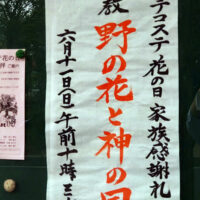 テコステ 花の日 家族感謝礼
教 野の花と神の国
六月十一日(日)午前十時三
花の